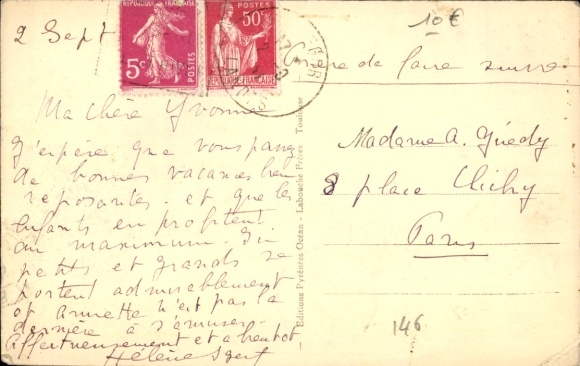 2 Sept
REPUBLIQUE FRANÇAISE
5c
POSTES
POSTES
50c
REPUBLIQUE FRANÇAISE
10 €
Prière de faire suivre
Ma chère Yvonne
J'espère que vous passez
de bonnes vacances bien
reposantes. et que les
Enfants en profitent
au maximum. Ici
petits et grands se
portent admirablement
et Annette n'est pas la
dernière à s'amuser.
Affectueusement et a bientot,
Hélène
Editions Pyrénées Océan - Labouche Frères Toulouse
Madame A. Guédy
8 place Clichy
Paris
146